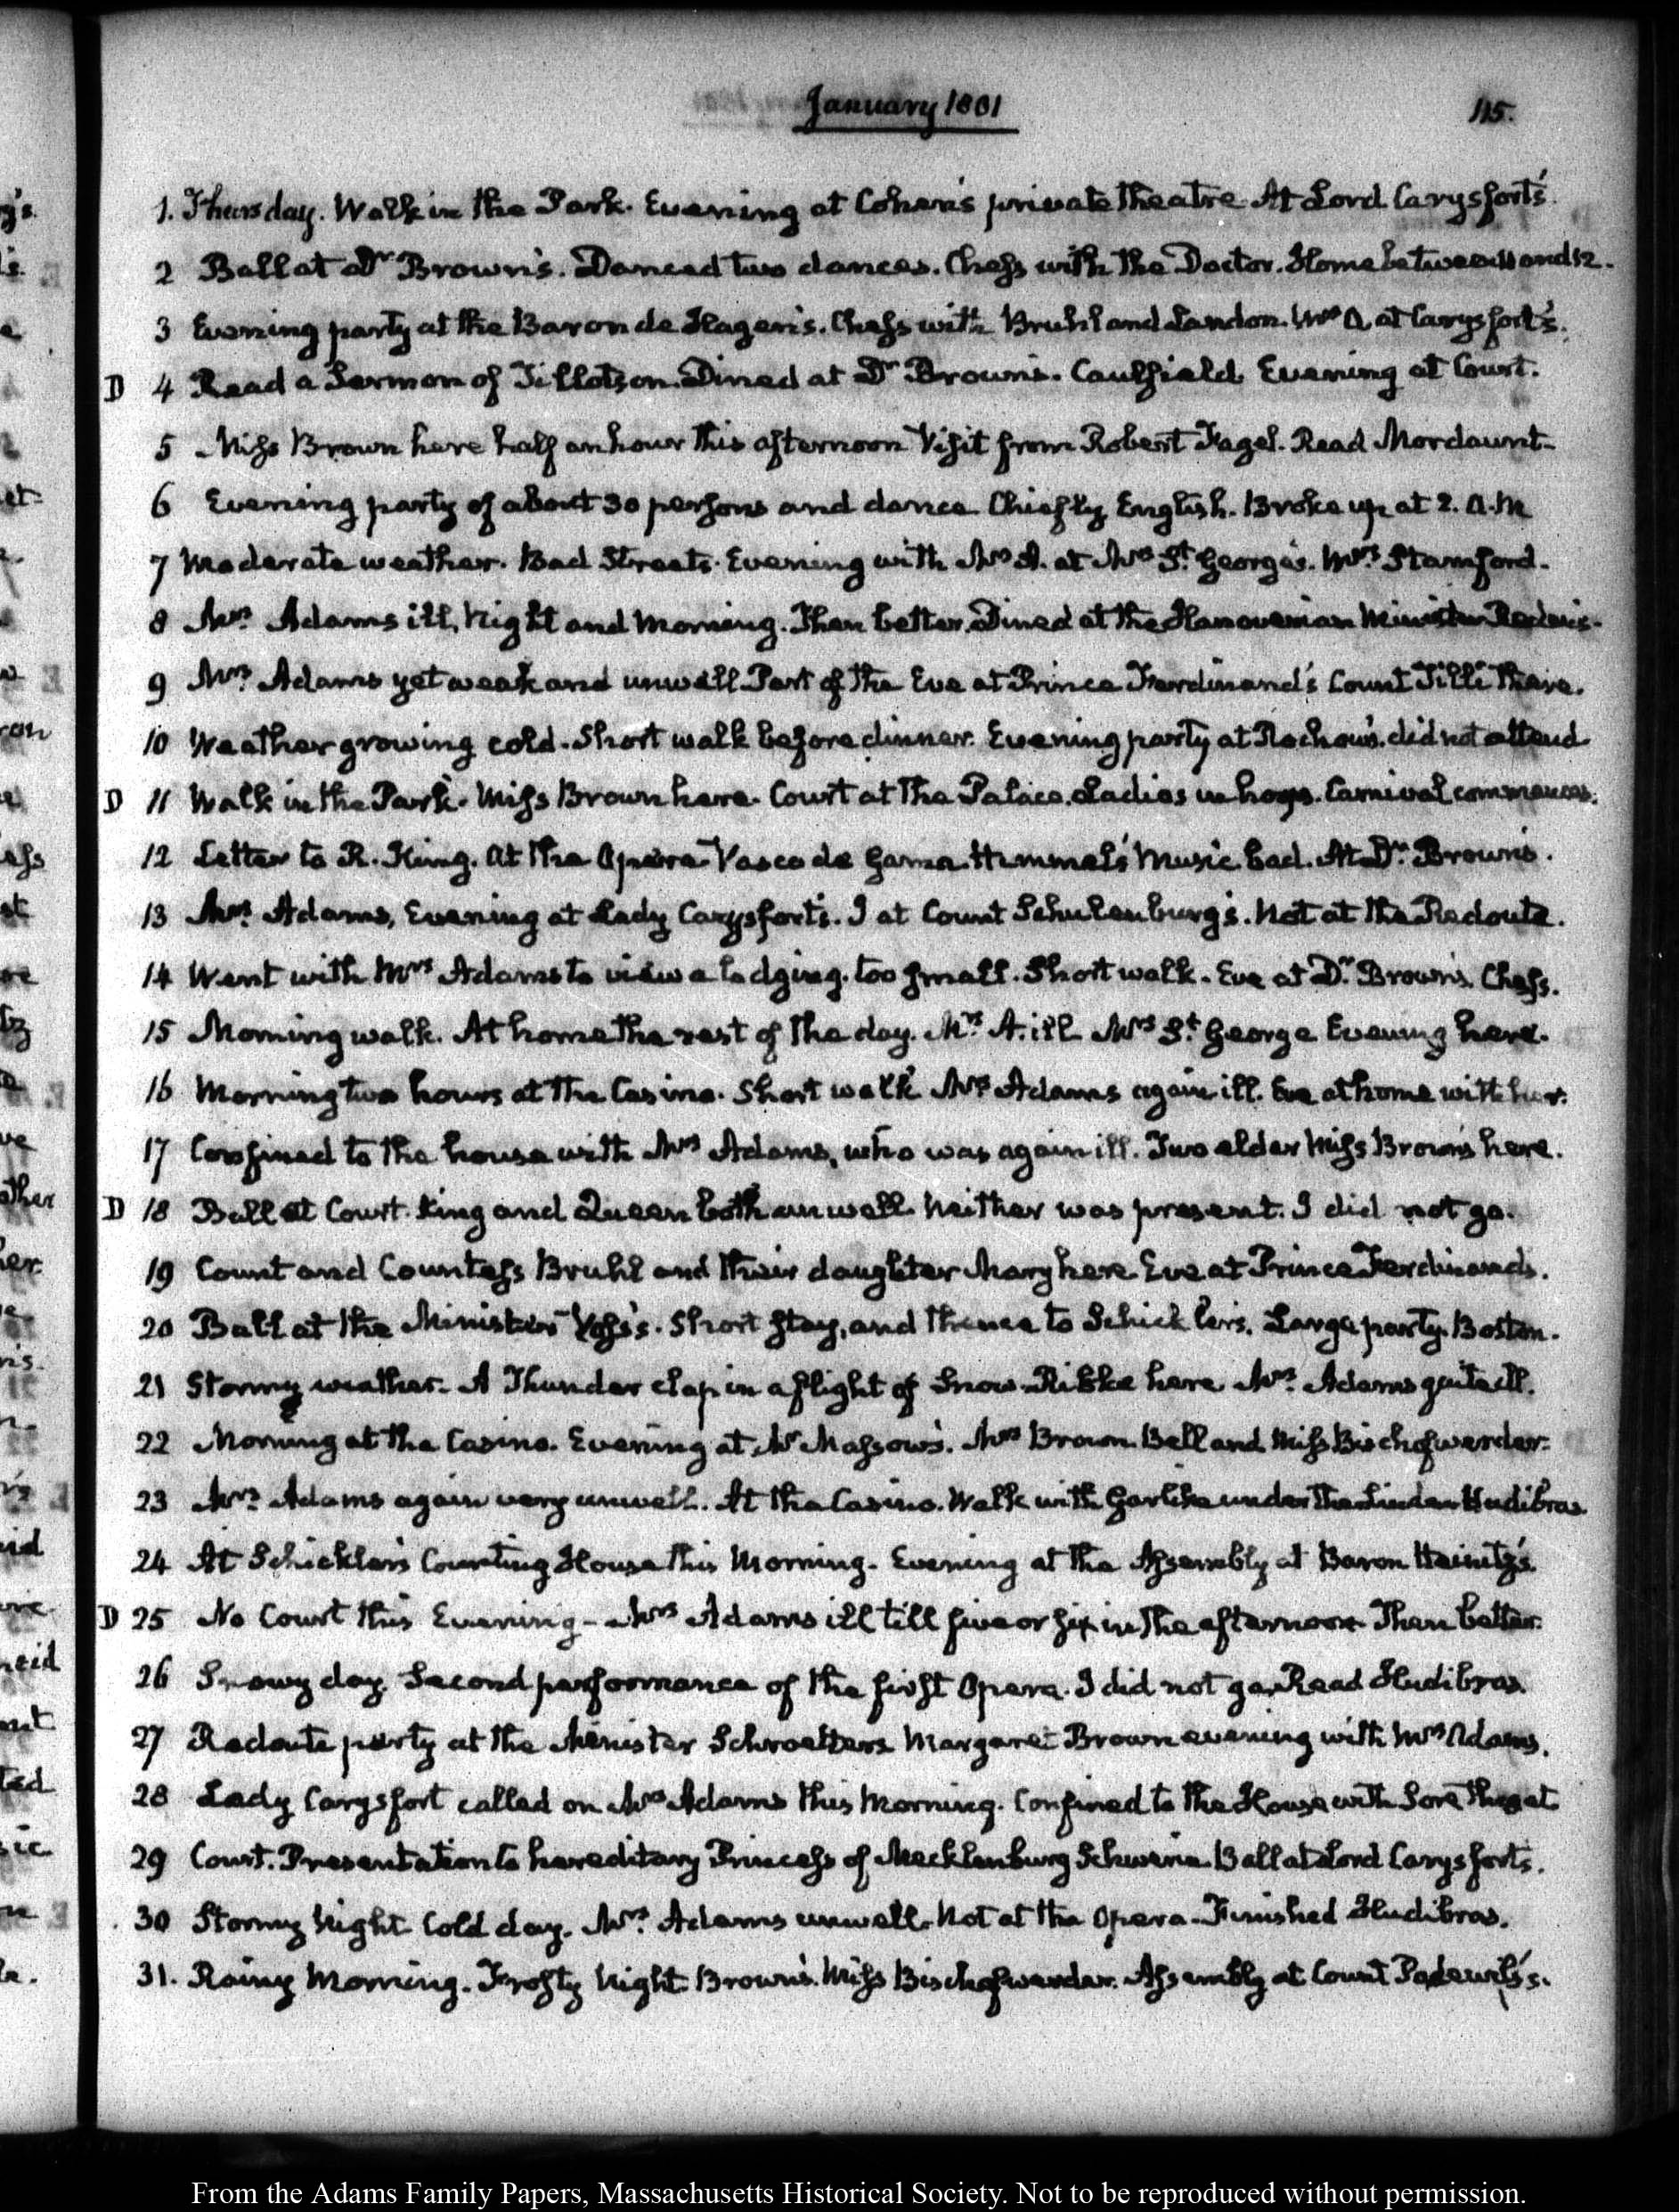 January 1801
115.
1. Thursday. Walk in the Park. Evening at Cohen's private theatre. At Lord Carysfort's.
2 Ball at Dr Brown's. Danced two dances. Chess with the Doctor. Home between 11 and 12.
3 Evening party at the Baron de Hagen's. Chess with Bruhl and Landon. Mrs A. at Carysfort's.
D 4 Read a Sermon of Tillotson. Dined at Dr Brown's. Caulfield. Evening at Court.
5 Miss Brown here half an hour this afternoon Visit from Robert Fagel. Read Mordaunt.
6 Evening party of about 30 persons and dance. Chiefly English. Broke up at 2. A.M
7 Moderate weather. Bad Streets. Evening with Mrs A. at Mrs St. George's. Mrs. Stamford.
8 Mrs. Adams ill, Night and Morning. Then better. Dined at the Hanoverian Minister Reden's.
9 Mrs. Adams yet weak and unwell. Part of the Eve at Prince Ferdinand's Count Tilli there.
10 Weather growing cold. Short walk before dinner. Evening party at Rochow's. did not attend
D 11 Walk in the Park. Miss Brown here. Court at the Palace. Ladies in hoops. Carnival commences.
12 Letter to R. King. At the Opera. Vasco de Gama. Himmel's Music bad. At Dr. Brown's.
13 Mrs. Adams, Evening at Lady Carysfort's. I at Count Schulenburg's. Not at the Redoute.
14 Went with Mrs Adams to view a lodging. too small. Short walk. Eve at Dr. Brown's. Chess.
15 Morning walk. At home the rest of the day. Mrs. A. ill. Mrs St. George Evening here.
16 Morning two hours at the Casino. Short walk Mrs Adams again ill. Eve at home with her.
17 Confined to the house with Mrs Adams, who was again ill. Two elder Miss Browns here.
D 18 Ball at Court. King and Queen both unwell. Neither was present. I did not go.
19 Count and Countess Bruhl and their daughter Mary here. Eve at Prince Ferdinands.
20 Ball at the Minister Voss's. Short stay, and thence to Schickler's. Large party. Boston.
21 Stormy weather. A Thunder clap in a flight of Snow. Ribke here Mrs. Adams quite ill.
22 Morning at the Casino. Evening at Mr Massow's. Mrs Brown. Bell and Miss Bischofwerder.
23 Mrs. Adams again very unwell. At the Casino. Walk with Garlike under the Linden Hudibras.
24 At Schickler's Counting House this Morning. Evening at the Assembly at Baron Heinitz's.
D 25 No Court this Evening - Mrs Adams ill till five or six in the afternoon. Then better.
26 Snowy day. Second performance of the first Opera. I did not go. Read Hudibras.
27 Redoute party at the Minister Schroetters Margaret Brown evening with Mrs Adams.
28 Lady Carysfort called on Mrs Adams this Morning. Confined to the House with Sore Throat
29 Court. Presentation to hereditary Princess of Mecklenburg Schwerin. Ball at Lord Carysforts.
30 Stormy Night Cold day. Mrs. Adams unwell. Not at the Opera. Finished Hudibras.
31. Rainy Morning. Frosty Night. Brown's. Miss Bischofwerder. Assembly at Count Podewils's.
From the Adams Family Papers, Massachusetts Historical Society. Not to be reproduced without permission.